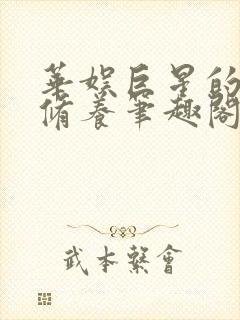 華娛巨星的
脩養筆趣閣
武本繫會